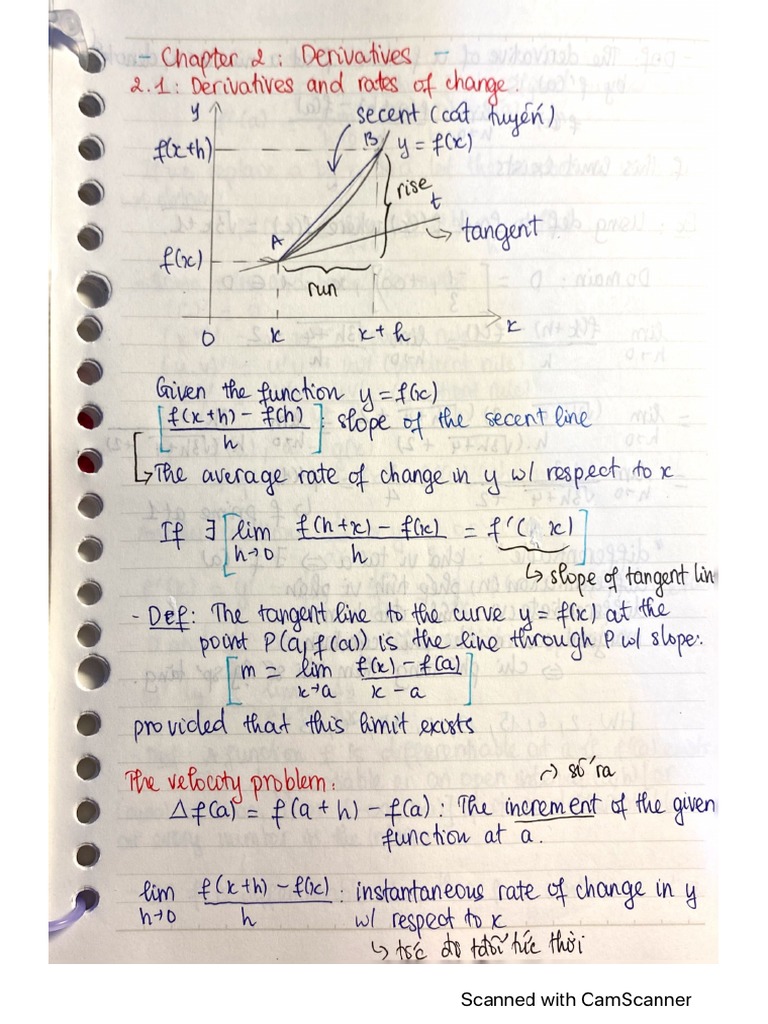 - Chapter 2: Derivatives -
2.1: Derivatives and rates of change.
y
secent (cát tuyến)
B
y = f(x)
f(x+h)
rise
t
tangent
A
f(x)
run
0
x
x + h
x
Given the function y = f(x)
[f(x+h) - f(h) / h] : slope of the secent line
↳ The average rate of change in y w/ respect to x
If ∃ [lim h→0 f(h+x) - f(x) / h = f'(x)]
↳ slope of tangent lin
- Def: The tangent line to the curve y = f(x) at the
point P(a, f(a)) is the line through P w/ slope:
[m = lim x→a f(x) - f(a) / x - a]
provided that this limit exists
The velocity problem:
↷ số ra
Δf(a) = f(a + h) - f(a) : The increment of the given
function at a.
lim h→0 f(x+h) - f(x) / h : instantaneous rate of change in y
w/ respect to x
↳ tốc độ tức thời
Scanned with CamScanner